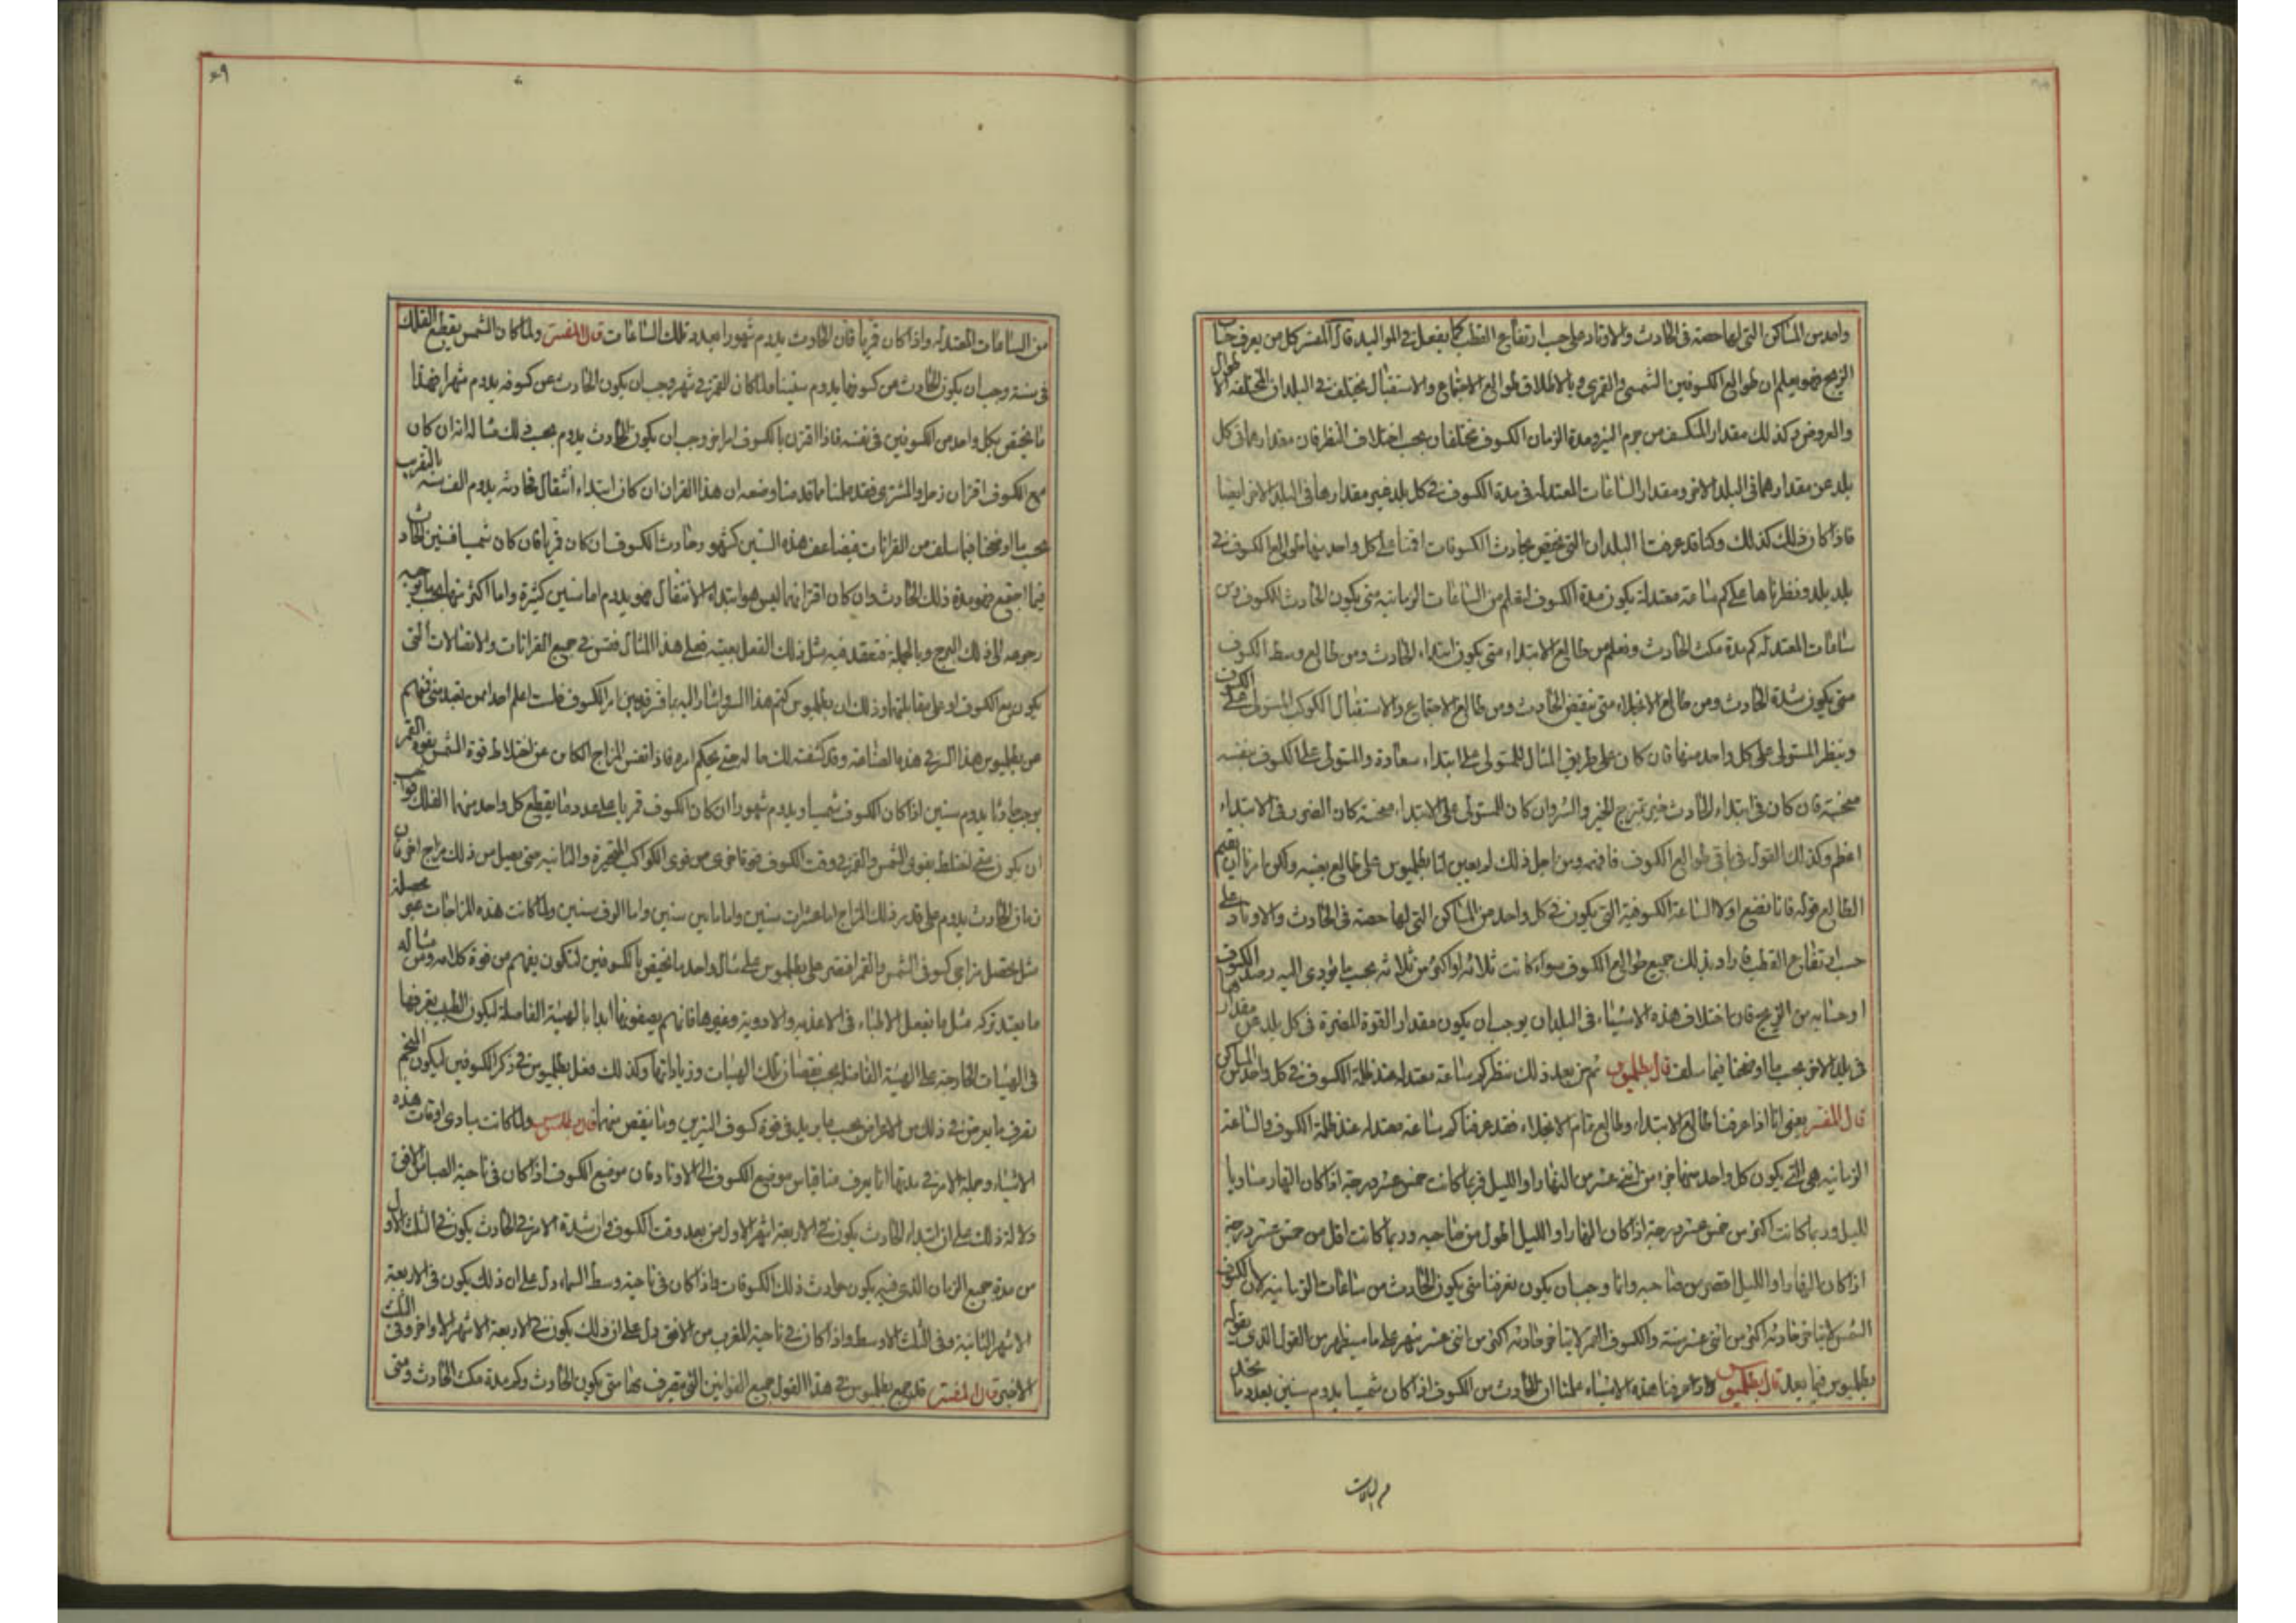 واحد من المساكن التى لها حصة فى الحادث والاوتاد على حسب ارتفاع القطب كما يفعل فى المواليد قال المفسر كل من يعرف حساب
الزيج فهو يعلم ان طوالع الكسوفين الشمسى والقمرى وبالاطلاق طوالع الاجتماع والاستقبال يختلف فى البلدان المختلفة الاطوال
والعروض وكذلك مقدار المنكسف من جرم النير ومدة الزمان الكسوف يختلفان بحسب اختلاف المنظر فان مقدارهما فى كل
بلد عن مقدارهما فى البلد الاخر ومقدار الساعات المعتدلة فى مدة الكسوف فى كل بلد غير مقدارها فى البلد الاخر ايضا
فاذا كان ذلك كذلك وكنا قد عرفنا البلدان التى يختص بحادث الكسوفات اقمنا على كل واحد منها طوالع الكسوف فى
بلد بلد ونظرنا على كم ساعة معتدلة يكون مدة الكسوف ليعلم من الساعات الزمانية متى يكون الحادث للكسوف ومن
ساعات المعتدلة كم مدة مكث الحادث ونعلم من طالع الابتداء متى يكون ابتداء الحادث ومن طالع وسط الكسوف
متى يكون شدة الحادث ومن طالع الانجلاء متى ينقضى الحادث ومن طالع الاجتماع والاستقبال الكوكب المستولى على الكسوف
وينظر المستولى على كل واحد منها فان كان على طريق المثال للمستولى على ابتداء سعادة والمستولى على الكسوف بنفسه
منحسة فان كان فى ابتداء الحادث خير يمتزج الخير والشر وان كان للمستولى على الابتداء منحسة كان الضرر فى الابتداء
اعظم وكذلك القول فى باقى طوالع الكسوف فافهم ومن اجل ذلك لم يعين لنا بطلميوس على طالع بعينه ولكن امرنا ان نقيم
الطالع قوله فانا نضع اولا الساعة الكسوفية التى يكون فى كل واحد من المساكن التى لها حصة فى الحادث والاوتاد على
حسب ارتفاع القطب فاراد بذلك جميع طوالع الكسوف سواء كانت ثلاثة او اكثر من ثلاثة بحسب ما يؤدى اليه رصد الكسوف
او حسابه من الزيج فان اختلاف هذه الاشياء فى البلدان يوجب ان يكون مقدار القوة المضرة فى كل بلد عن مقدارها
فى بلد الاخر بحسب ما اوضحنا فيما سلف قال بطلميوس ثم من بعد ذلك ننظر كم ساعة معتدلة عند ظلمة الكسوف فى كل واحد من المساكن
قال المفسر يعنى انا اذا عرفنا طالع الابتداء وطالع تمام الانجلاء فقد عرفنا كم ساعة معتدلة عند ظلمة الكسوف والساعة
الزمانية هى التى يكون كل واحد منها جزء من اثنى عشر من النهار او الليل فربما كانت خمس عشر درجة اذا كان النهار مساويا
لليل وربما كانت اكثر من خمس عشر درجة اذا كان النهار او الليل اطول من صاحبه وربما كانت اقل من خمس عشر درجة
اذا كان النهار او الليل اقصر من صاحبه وانما وجب ان يكون تعرفنا متى يكون الحادث من ساعات الزمانية لان الكسوف
الشمس لا يتاخر حادثه اكثر من اثنى عشر سنة والكسوف القمر لا يتاخر حادثه اكثر من اثنى عشر شهر على ما سيظهر من القول الذى يقوله
بطلميوس فيما بعد قال بطلميوس واذا عرفنا هذه الاشياء علمنا ان الحادث من الكسوف اذا كان شمسيا يدوم سنين بعدد ما
من الساعات
٤٩
من الساعات المعتدلة واذا كان قمريا فان الحادث يدوم شهورا بعدد تلك الساعات قال المفسر ولما كان الشمس يقطع الفلك
فى سنة وجب ان يكون الحادث عن كسوفها يدوم سنينا ولما كان للقمر فى شهر وجب ان يكون الحادث عن كسوفه يدوم شهرا فهذا
ما يختص بكل واحد من الكسوفين فى نفسه فاذا اقترن بالكسوف امر اخر وجب ان يكون الحادث يدوم بحسب ذلك مثاله انه ان كان
مع الكسوف اقتران زحل والمشترى فقد علمنا مما قدمنا وضعه ان هذا القران ان كان ابتداء انتقال فحادثه يدوم الف سنة بالتقريب
بحسب ما اوضحنا فيما سلف من القرانات فيضاعف هذه السنين كشهور حادث الكسوف ان كان قمريا فان كان شمسيا فسنين الحادث
فما اجتمع فهو مدة ذلك الحادث وان كان اقترانهما ليس هو ابتداء الانتقال فهو يدوم اما سنين كثيرة واما اكثر منها بحسب ما يوجبه
رجوعه الى ذلك البرج وبالجملة فتعقد فيه مثل ذلك الفعل بعينه فعلى هذا المثال فقس فى جميع القرانات والاتصالات التى
يكون مع الكسوف او على مقابلتها وذلك ان بطلميوس كتم هذا السر واشار اليه بما فرقه بين امر الكسوف فلست اعلم احدا من تقدمنى فهم
عن بطلميوس هذا السر فى هذه الصناعة وقد كشفته لك ما لم حتى يحكم امره فاذا نفس المزاج الكائن عن اختلاط قوة الشمس بقوة القمر
يوجب حادثا يدوم سنين اذا كان الكسوف شمسيا ويدوم شهورا ان كان الكسوف قمريا على عدد ما يقطع كل واحد منهما الفلك فواجب
ان يكون متى اختلط بقوى الشمس والقمر فى وقت الكسوف قوة اخرى من قوى الكواكب المتحيرة والثانية حتى يحصل من ذلك مزاج اخر فان
ذلك الحادث يدوم على قدر ذلك المزاج اما عشرات سنين واما مائين سنين واما الوف سنين ولما كانت هذه المزاجات غير محصلة
مثل تحصل مزاجى كسوفى الشمس والقمر اقتصر على بطلميوس على مثال واحد ما يختص بالكسوفين لنكون يفهم من قوة كلامه ومن مثاله
ما يعتد تركه مثل ما يفعل الاطباء فى الاغذية والادوية وغيرها فانهم يصفونها ابدا بالهيئة الفاضلة ليكون الطبيب يعرفها
فى الهيئات الخارجة على الهيئة الفاضلة بحسب نقصان تلك الهيئات وزياداتها وكذلك فعل بطلميوس فى ذكر الكسوفين ليكون المنجم
يعرف ما يعرض فى ذلك من الاعراض بحسب ما يزيد فى قوة كسوف النيرين وما ينقص منها قال بطلميوس ولما كانت مبادى اوقات هذه
الاشياء وجملة الامر فى مدتها انما يعرف منا قياس موضع الكسوف الى الاوتاد فان موضع الكسوف اذا كان فى ناحية الصباس الافق
دلالة ذلك على ان ابتداء الحادث يكون فى الاربعة اشهر الاول من بعد وقت الكسوف وان شدة الامر فى الحادث يكون فى الثلث الاول
من مدة جميع الزمان الذى فيه يكون حوادث ذلك الكسوفات فاذا كان فى ناحية وسط السماء دل على ان ذلك يكون فى الاربعة
الاشهر الثانية وفى الثلث الاوسط واذا كان فى ناحية المغرب من الافق دل على ان ذلك يكون فى الاربعة الاشهر الاواخر وفى الثلث
الاخير قال المفسر قد جمع بطلميوس فى هذا القول جميع القوانين التى يتعرف بها متى يكون الحادث وكم مدة مكث الحادث ومتى